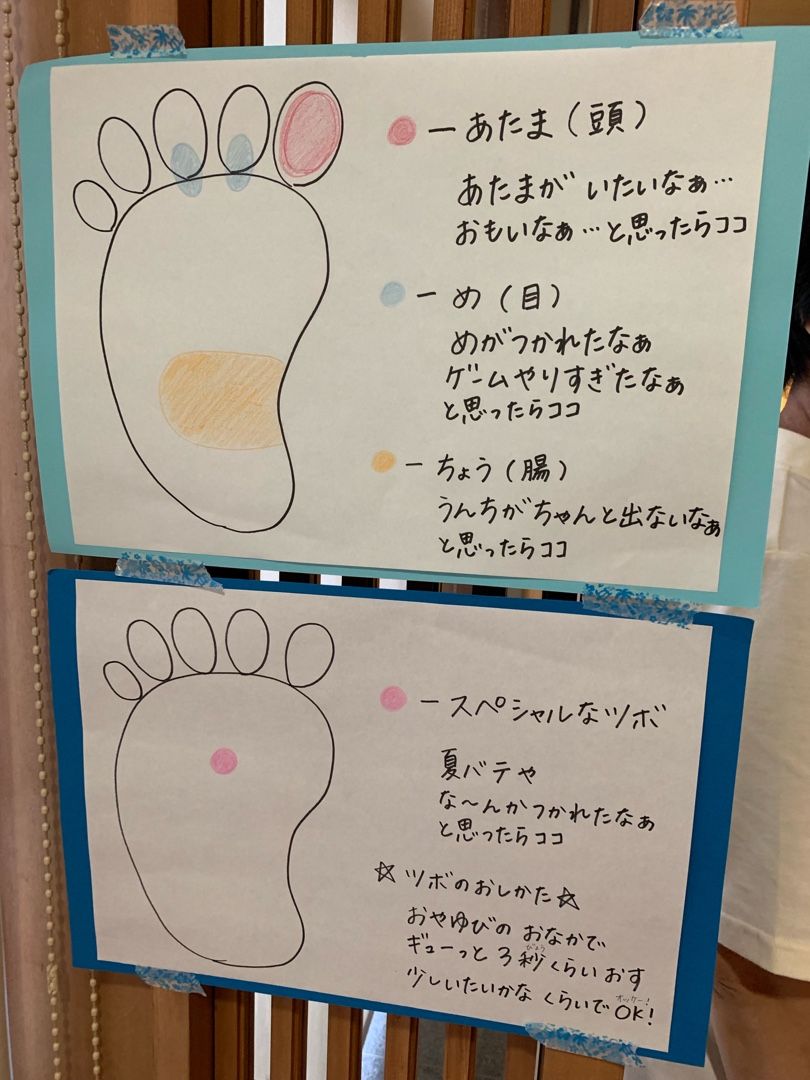 ーあたま(頭)
あたまが いたいなぁ…
おもいなぁ…と思ったらココ
ーめ(目)
めがつかれたなぁ
ゲームやりすぎたなぁ
と思ったらココ
ーちょう(腸)
うんちがちゃんと出ないなぁ
と思ったらココ
ースペシャルなツボ
夏バテや
な〜んかつかれたなぁ
と思ったらココ
☆ツボのおしかた☆
おやゆびの おなかで
びょう
ギューっと 3秒くらい おす
オッケー!
少しいたいかな くらいでOK!